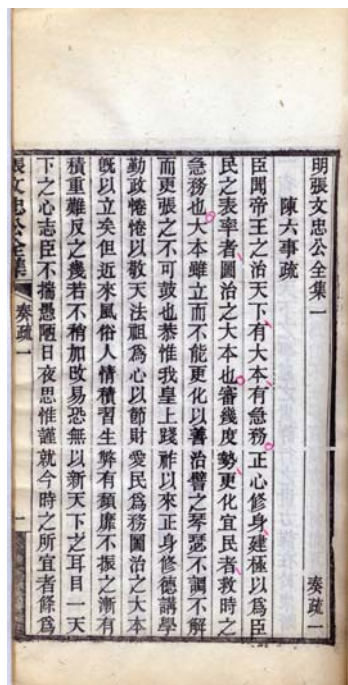 明張文忠公全集一
奏疏一
陳六事疏
臣聞帝王之治天下有大本有急務正心修身建極以爲臣
民之表率者圖治之大本也審幾度勢更化宜民者救時之
急務也大本雖立而不能更化以善治譬之琴瑟不調不解
而更張之不可鼓也恭惟我皇上踐祚以來正身修德講學
勤政惓惓以敬天法祖爲心以節財愛民爲務圖治之大本
旣以立矣但近來風俗人情積習生弊有頽靡不振之漸有
積重難反之幾若不稍加攺易恐無以新天下之耳目一天
下之心志臣不揣愚陋日夜思惟謹就今時之所宜者條爲
張文忠公全集
奏疏一
一